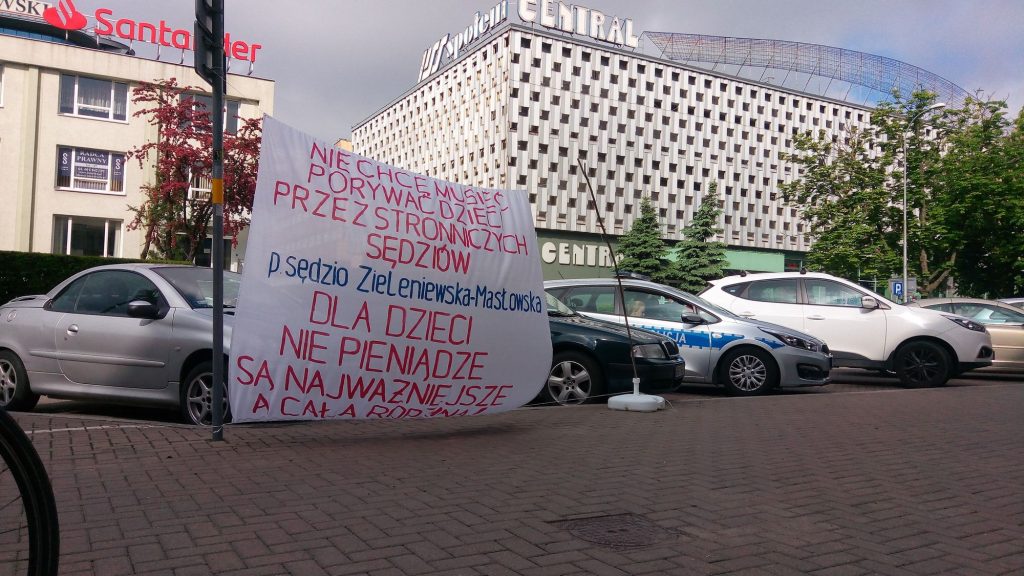 WSKI
Santander
Społem CENTRAL
RADCA
PRAWNY
NIE CHCE MUSIEĆ
PORYWAĆ DZIECI
PRZEZ STRONNICZYCH
SĘDZIÓW
p.sędzio Zieleniewska-Masłowska
DLA DZIECI
NIE PIENIĄDZE
SĄ NAJWAŻNIEJSZE
A CAŁA RODZINA
CENTRAL
P